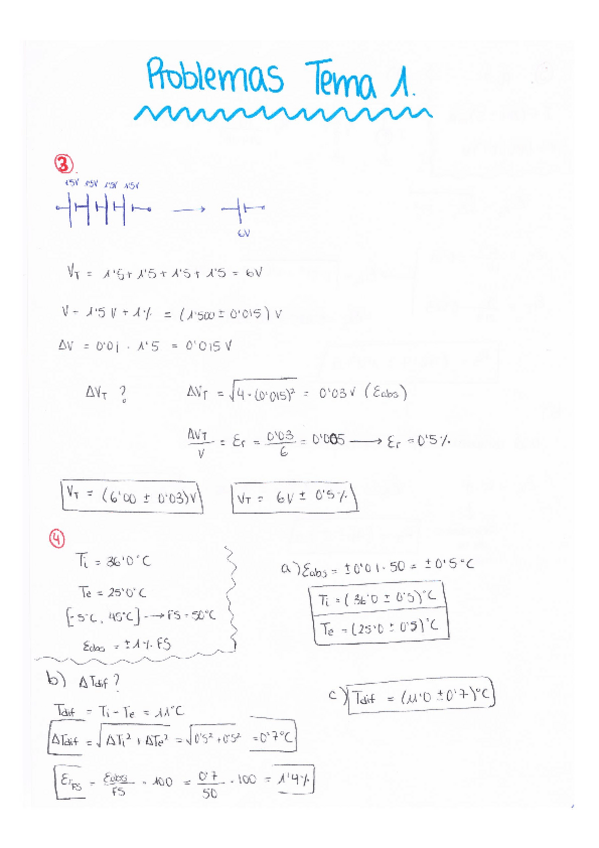 Problemas Tema 1.
3
1'5V 1'5V 1'5V 1'5V
6V
V_T = 1'5 + 1'5 + 1'5 + 1'5 = 6V
V = 1'5 V ± 1% = (1'500 ± 0'015) V
ΔV = 0'01 · 1'5 = 0'015 V
ΔV_T ? ΔV_T = √4·(0'015)² = 0'03 V (Eabs)
ΔV_T / V = Er = 0'03 / 6 = 0'005 → Er = 0'5%
V_T = (6'00 ± 0'03)V V_T = 6V ± 0'5%
4
Ti = 36'0°C
Te = 25'0°C
[-5°C, 45°C] → FS = 50°C
Eabs = ±1% FS
a) Eabs = ±0'01·50 = ±0'5°C
Ti = (36'0 ± 0'5)°C
Te = (25'0 ± 0'5)°C
b) ΔTdif ?
Tdif = Ti - Te = 11°C
ΔTdif = √ΔTi² + ΔTe² = √0'5² + 0'5² = 0'7°C
Er_FS = Eabs / FS · 100 = 0'7 / 50 · 100 = 1'4%
c) Tdif = (11'0 ± 0'7)°C